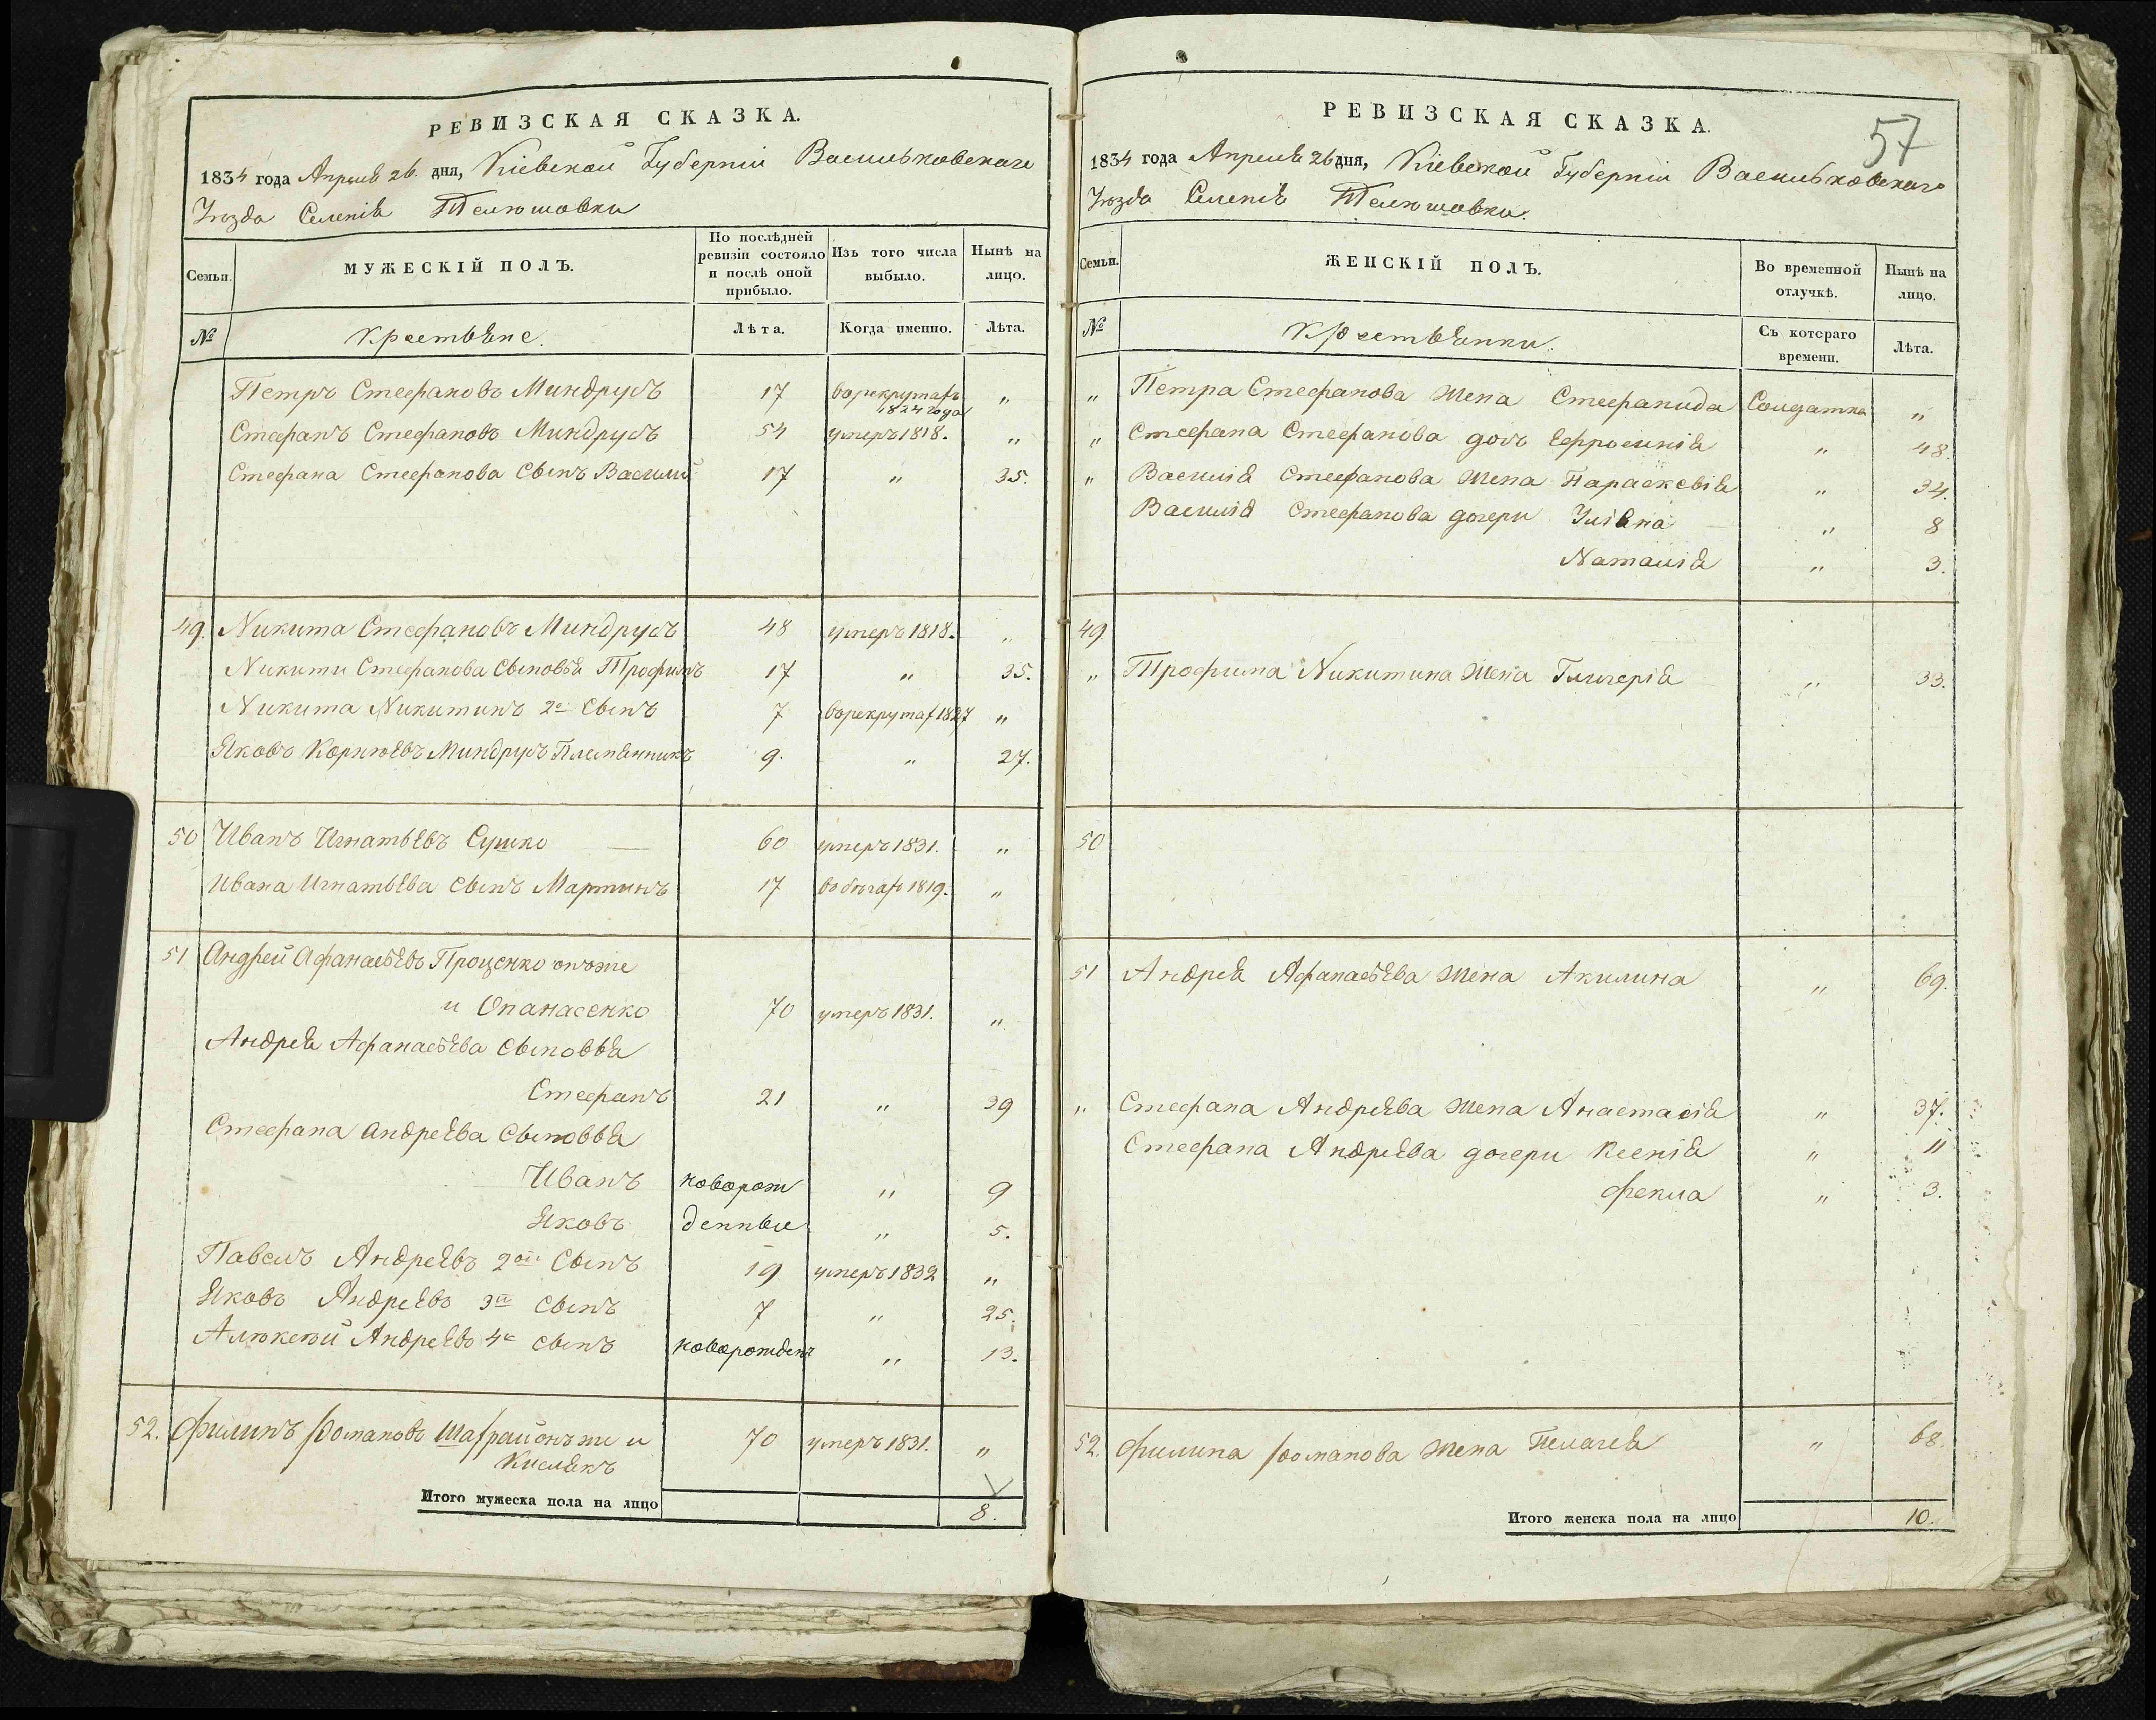 РЕВИЗСКАЯ СКАЗКА.
1834 года Апреля 26. дня, Кіевской Губерніи Васильковскаго
Уѣзда Селенія Телюшовки
Семьи. МУЖЕСКІЙ ПОЛЪ. По послѣдней ревизіи состояло и послѣ оной прибыло. Изъ того числа выбыло. Нынѣ на лицо.
№ Крестьяне. Лѣта. Когда именно. Лѣта.
Петръ Стефановъ Миндрусъ 17 въ рекрутахъ 1824 года „
Стефанъ Стефановъ Миндрусъ 54 умеръ 1818. „
Стефана Стефанова Сынъ Василий 17 „ 35.
49. Никита Стефановъ Миндрусъ 48 умеръ 1818. „
Никити Стефанова Сыновья Трофимъ 17 „ 35.
Никита Никитинъ 2й Сынъ 7 въ рекрутах 1827 „
Яковъ Корнѣевъ Миндрусъ Племянникъ 9. „ 27.
50 Иванъ Игнатьевъ Сушко 60 умеръ 1831. „
Ивана Игнатьева Сынъ Мартинъ 17 въ бѣгах 1819. „
51 Андрей Афанасьевъ Проценко онъже
и Опанасенко 70 умеръ 1831. „
Андрея Афанасьева Сыновья
Стефанъ 21 „ 39
Стефана Андреева Сыновья
Иванъ новорож „ 9
Яковъ денные „ 5.
Павелъ Андреевъ 2ой Сынъ 19 умеръ 1832 „
Яковъ Андреевъ 3й Сынъ 7 „ 25.
Алѣксѣй Андреевъ 4й сынъ новорожден „ 13.
52. Филипъ Романовъ онъже и 70 умеръ 1831. „
Кислякъ
Итого мужеска пола на лицо 8.
РЕВИЗСКАЯ СКАЗКА.
57
1834 года Апреля 26 дня, Кіевской Губерніи Васильковскаго
Уѣзда Селенія Телюшовки.
Семьи. ЖЕНСКІЙ ПОЛЪ. Во временной отлучкѣ. Нынѣ на лицо.
№ Крестьянки. Съ котораго времени. Лѣта.
„ Петра Стефанова Жена Стефанида Солдатка „
„ Стефана Стефанова дочь Ефросинія „ 48.
„ Василія Стефанова Жена Параскевія „ 34.
Василія Стефанова дочери Уліяна „ 8
Наталія „ 3.
49
„ Трофима Никитина Жена Гликерія „ 33.
50
51 Андрея Афанасьева Жена Акилина „ 69.
„ Стефана Андреева Жена Анастасія „ 37.
Стефана Андреева дочери Ксенія „ 11
Фекла „ 3.
52. Филипа Романова Жена Пелагея „ 68.
Итого женска пола на лицо 10.